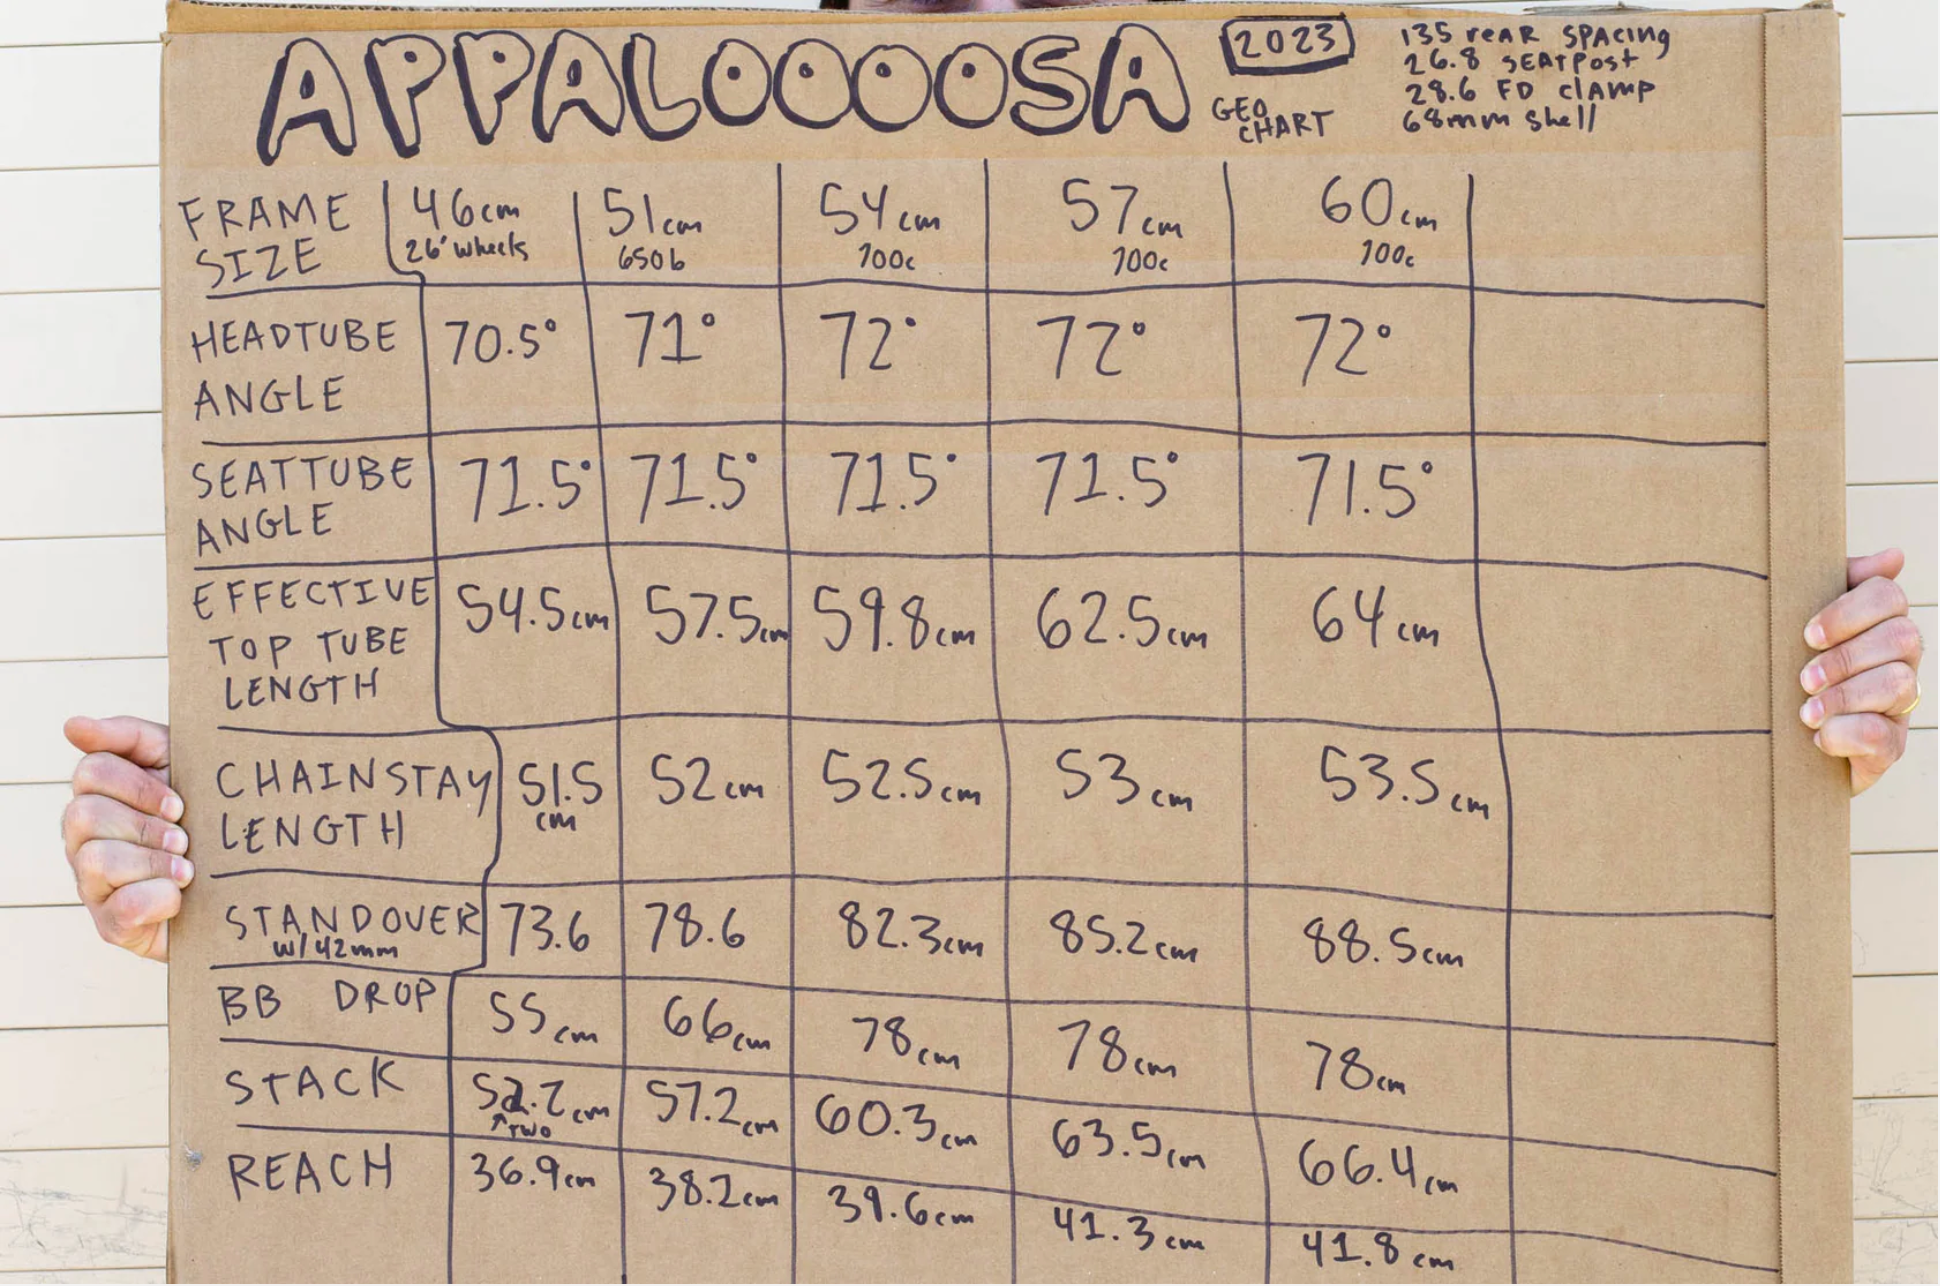 APPALOOOOSA
2023
GEO
CHART
135 reAR SPAcing
26.8 SEATPOST
28.6 FD clAmp
68mm shell
FRAME
SIZE
46cm
26" wheels
51cm
650b
54cm
700c
57cm
700c
60cm
700c
HEADTUBE
ANGLE
70.5° 71° 72° 72° 72°
SEATTUBE
ANGLE
71.5° 71.5° 71.5° 71.5° 71.5°
EFFECTIVE
TOP TUBE
LENGTH
54.5cm 57.5cm 59.8cm 62.5cm 64cm
CHAINSTAY
LENGTH
51.5
cm
52cm 52.5cm 53cm 53.5cm
STANDOVER
W/42mm
73.6 78.6 82.3cm 85.2cm 88.5cm
BB DROP
55cm 66cm 78cm 78cm 78cm
STACK
52.7cm
↑TWO
57.2cm 60.3cm 63.5cm 66.4cm
REACH
36.9cm 38.2cm 39.6cm 41.3cm 41.8cm